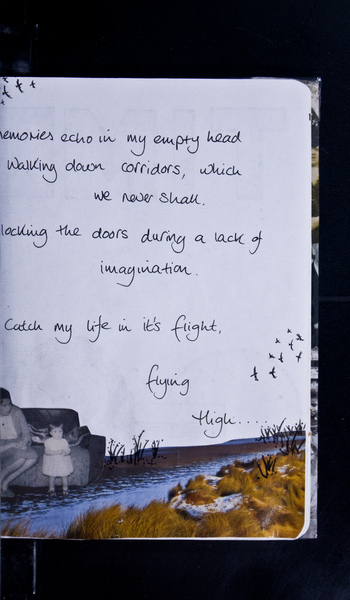 memories echo in my empty head
Walking down corridors, which
we never shall.
locking the doors during a lack of
imagination.
Catch my life in it's flight,
flying
High....